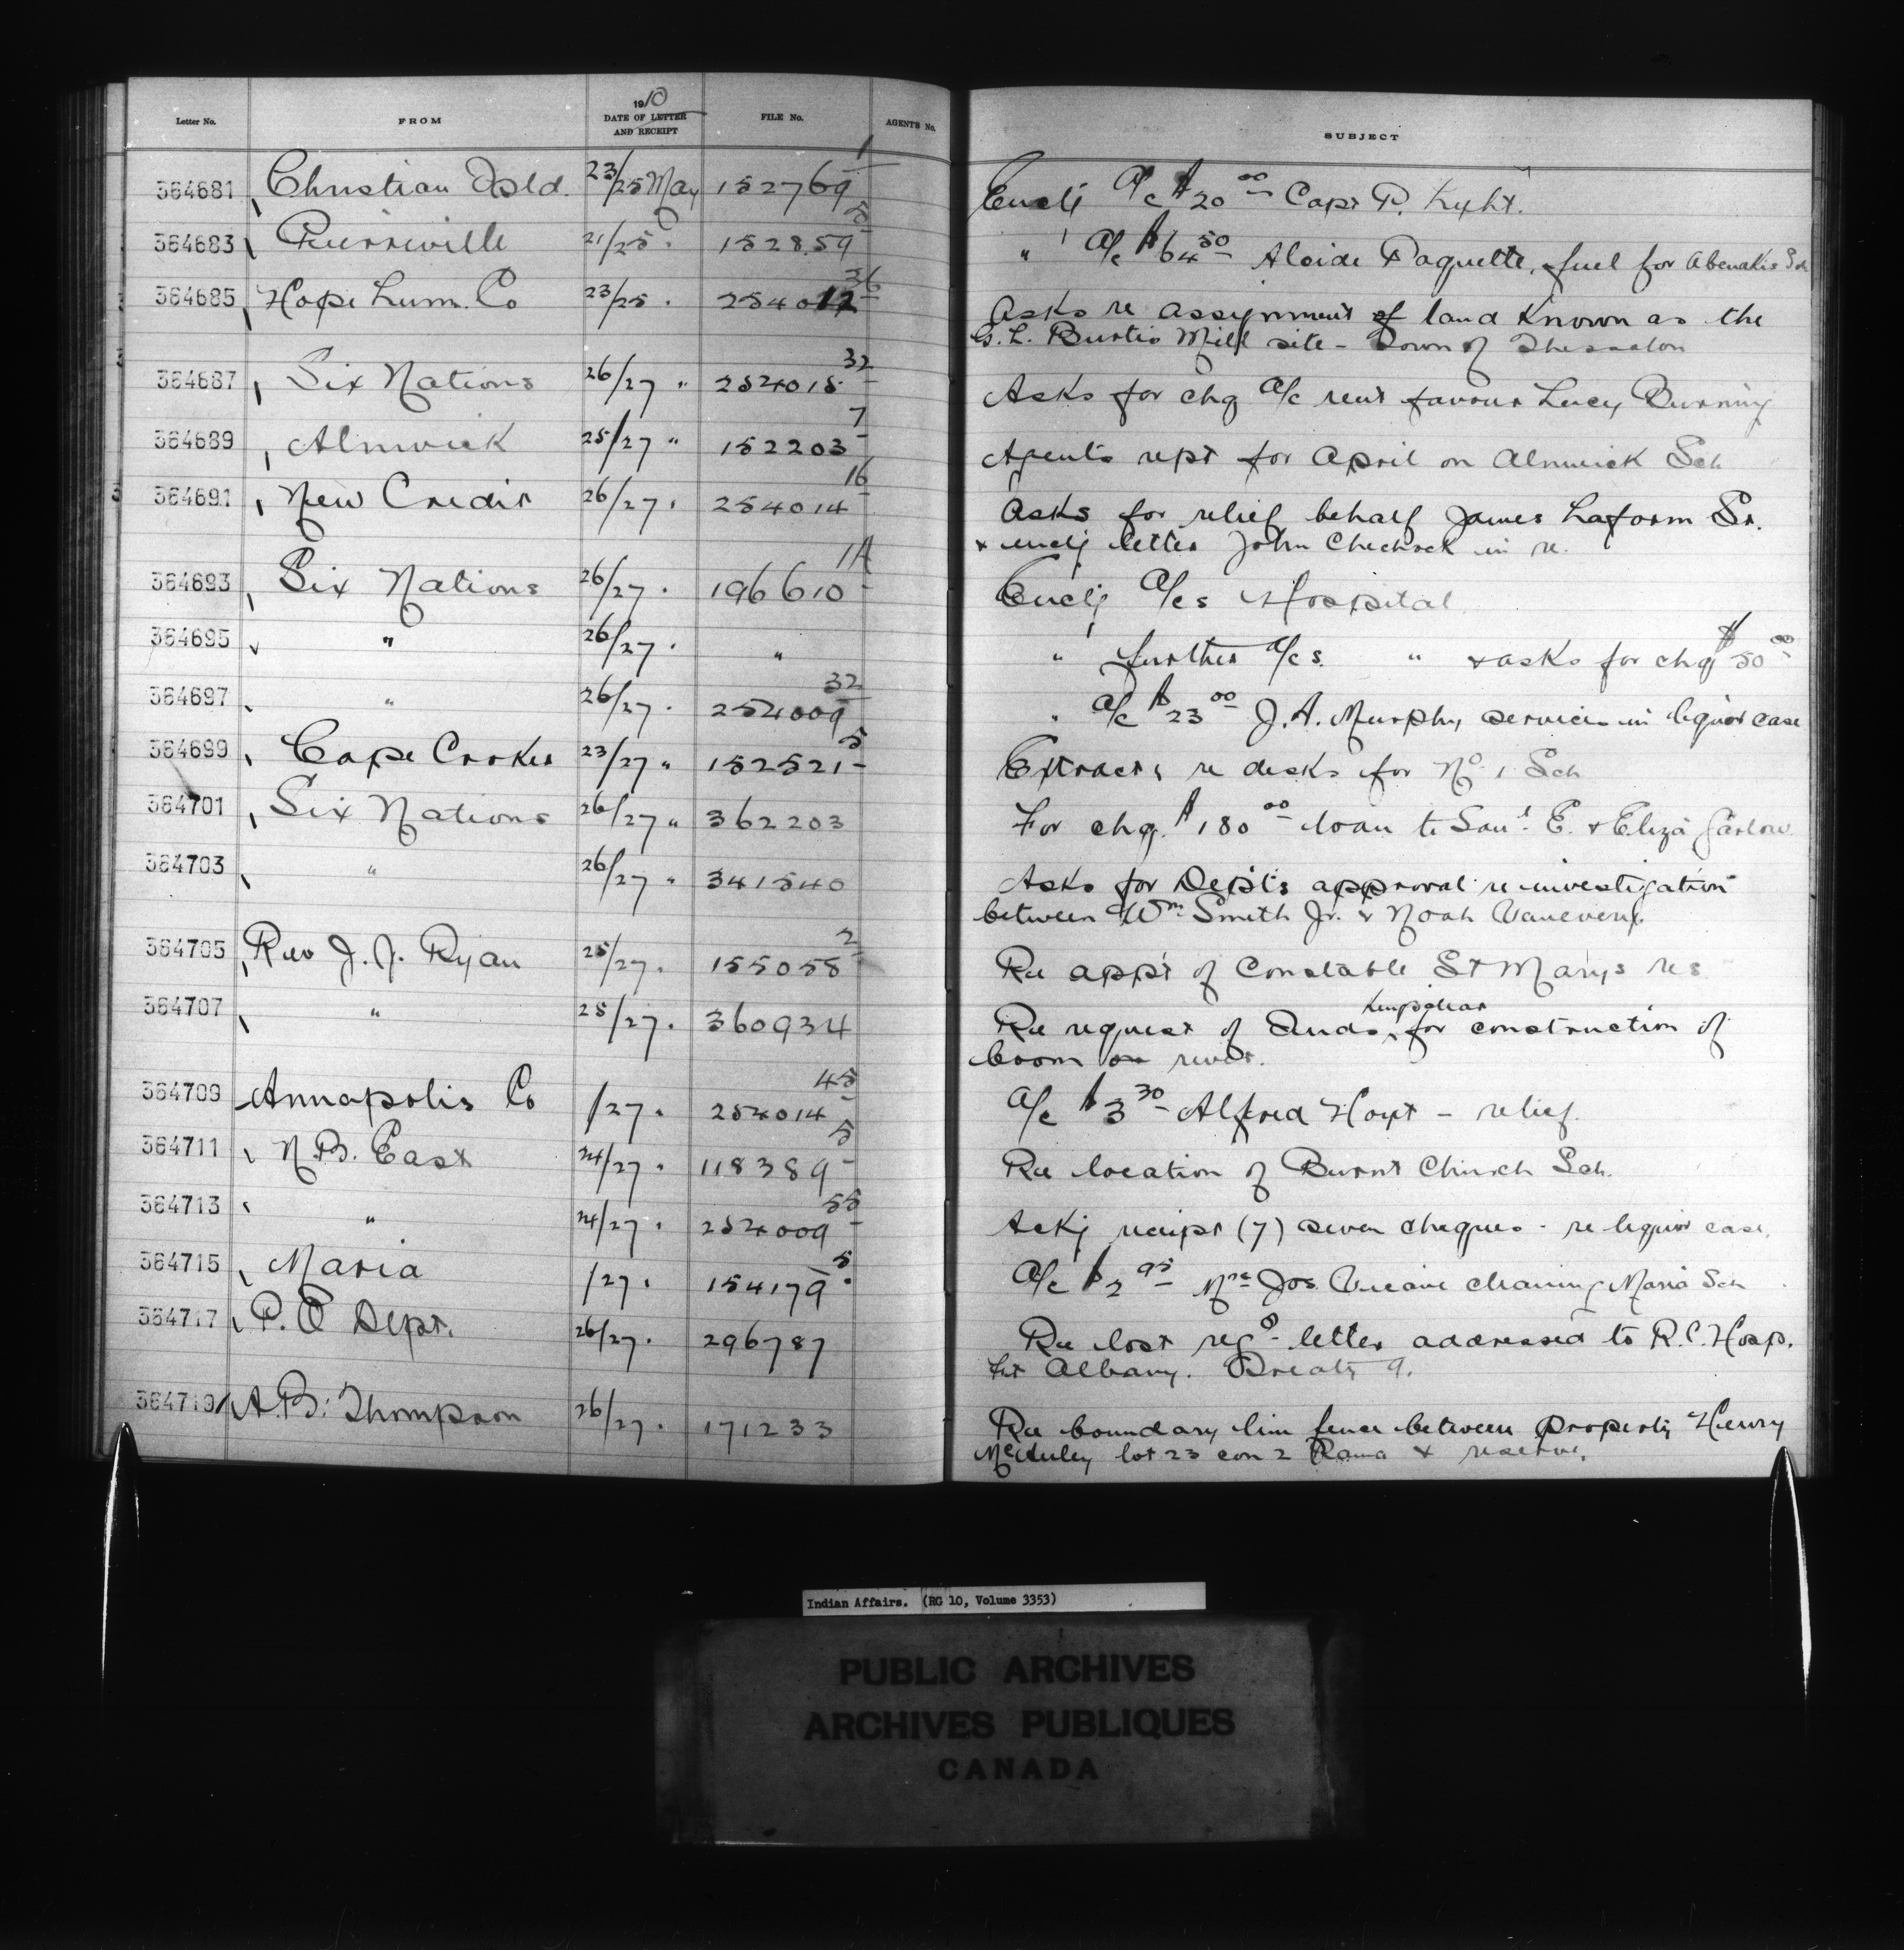 Letter No. FROM 1910 DATE OF LETTER AND RECEIPT FILE No. AGENTS No. SUBJECT
364681 Christian Isld. 23/25 May 152769-1 Enclg a/c $20.00 Capt P. Kyht.
364683 Pierreville 21/25 " 152859-5 " a/c $64.50 Alcide Paquette, fuel for Abenakis Sch
364685 Hope Lum. Co 23/25 " 254012-36 Asks re assignment of land known as the
G. L. Burtis Mill site - Town of Thessalon
364687 Six Nations 26/27 " 254015-32 Asks for chq a/c rent favour Lucy Burning
364689 Alnwick 25/27 " 152203-7 Agents rept for April on Alnwick Sch
364691 New Credit 26/27 " 254014-16 Asks for relief behalf James Laform Sr.
& enclg letter John Chechock in re.
364693 Six Nations 26/27 " 196610-1A Enclg a/cs Hospital
364695 " 26/27 " " " further a/cs. " & asks for chq $50.00
364697 " 26/27 " 254009-32 " a/c $23.00 J. A. Murphy services in liquor case
364699 Cape Croker 23/27 " 152521-5 Extracts re desks for No 1 Sch
364701 Six Nations 26/27 " 362203 For chq. $180.00 loan to Saml. E. & Eliza Garlow.
364703 " 26/27 " 341540 Asks for Dept's approval re investigation
between Wm Smith Jr. & Noah Vanevery.
364705 Rev J. J. Ryan 25/27 " 155058-2 Re app't of Constable St Marys res
364707 " 25/27 " 360934 Re request of Inds, Kingsclear for construction of
boom on river.
364709 Annapolis Co /27 " 254014-45 a/c $3.30 Alfred Hoyt - relief.
364711 N. B. East 24/27 " 118389-5 Re location of Burnt Church Sch.
364713 " 24/27 " 254009-55 Ackg receipt (7) seven cheques - re liquor case.
364715 Maria /27 " 154179-5 a/c $2.95 Mrs Jos. cleaning Maria Sch
364717 P. O Dept. 26/27 " 296787 Re lost regd letter addressed to R. C. Hosp.
Ft Albany. Treaty 9.
364719 A. B. Thompson 26/27 " 171233 Re boundary line fence between property Henry
McAuley lot 23 con 2 Rama & reserve.
Indian Affairs. (RG 10, Volume 3353)
PUBLIC ARCHIVES
ARCHIVES PUBLIQUES
CANADA